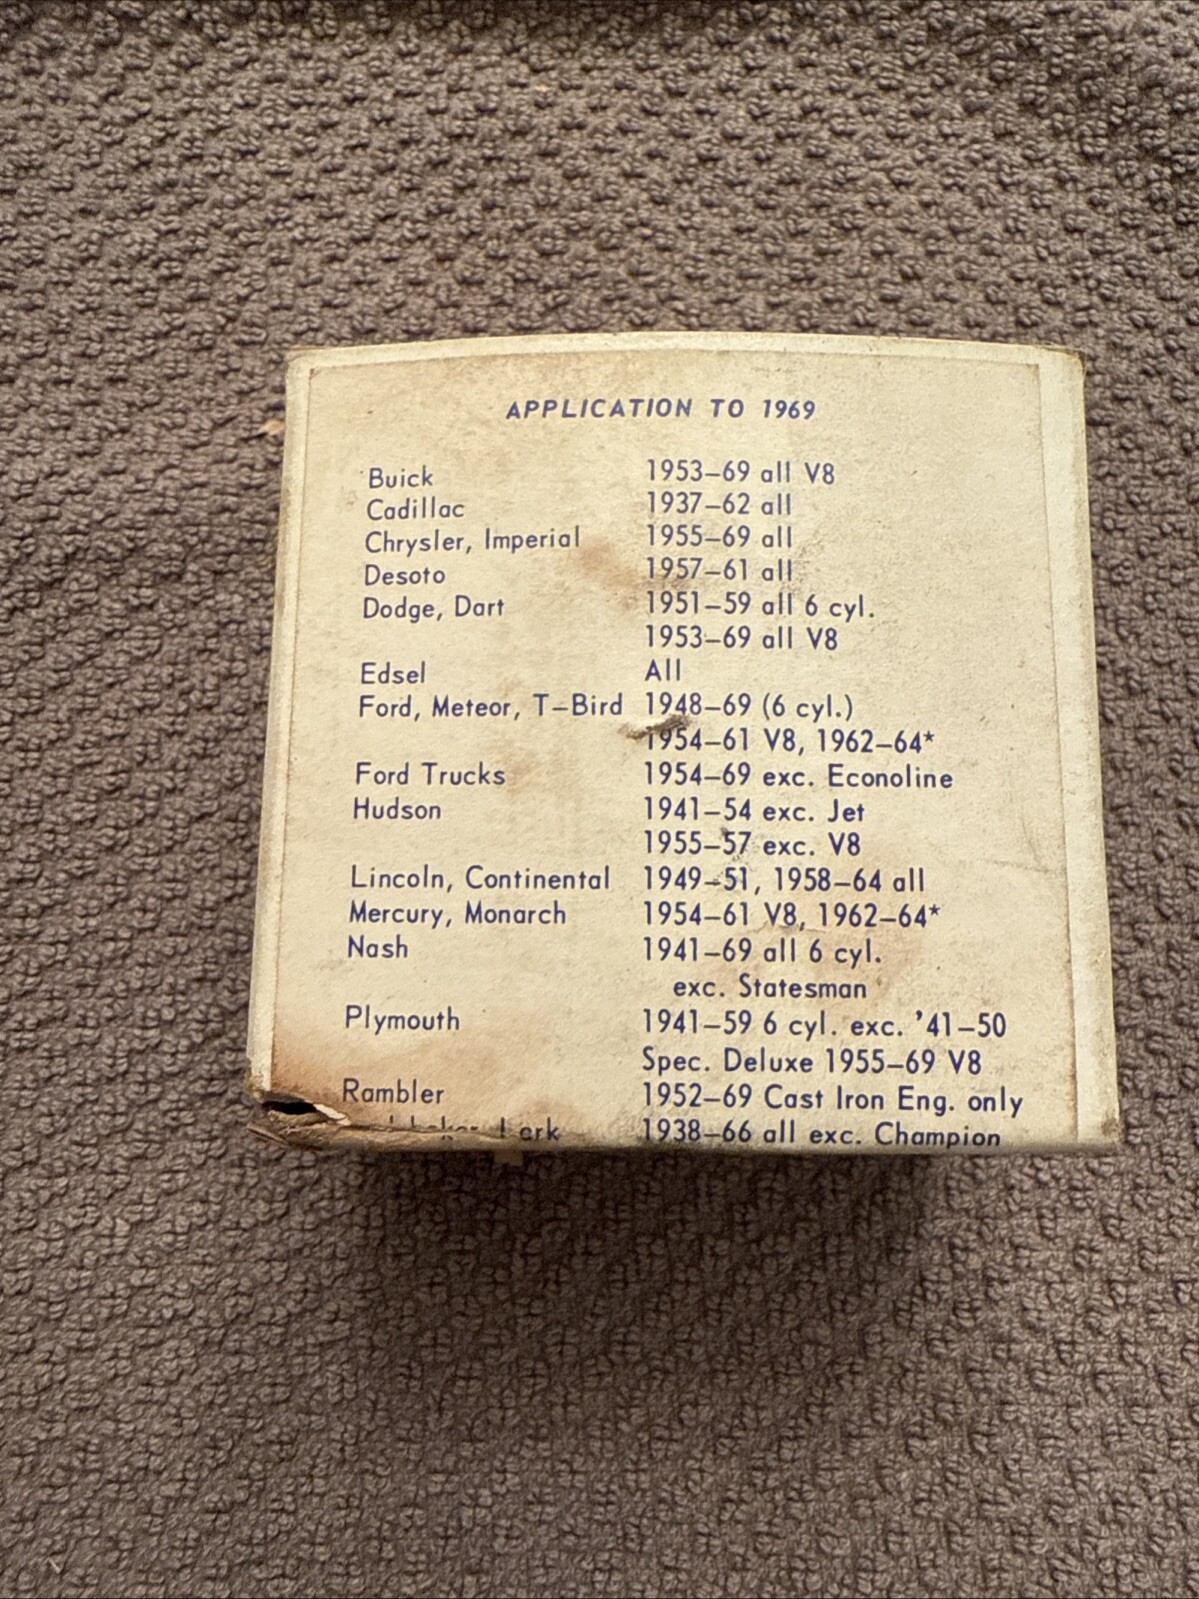 APPLICATION TO 1969
Buick 1953-69 all V8
Cadillac 1937-62 all
Chrysler, Imperial 1955-69 all
Desoto 1957-61 all
Dodge, Dart 1951-59 all 6 cyl.
1953-69 all V8
Edsel All
Ford, Meteor, T-Bird 1948-69 (6 cyl.)
1954-61 V8, 1962-64*
Ford Trucks 1954-69 exc. Econoline
Hudson 1941-54 exc. Jet
1955-57 exc. V8
Lincoln, Continental 1949-51, 1958-64 all
Mercury, Monarch 1954-61 V8, 1962-64*
Nash 1941-69 all 6 cyl.
exc. Statesman
Plymouth 1941-59 6 cyl. exc. '41-50
Spec. Deluxe 1955-69 V8
Rambler 1952-69 Cast Iron Eng. only
1938-66 all exc. Champion